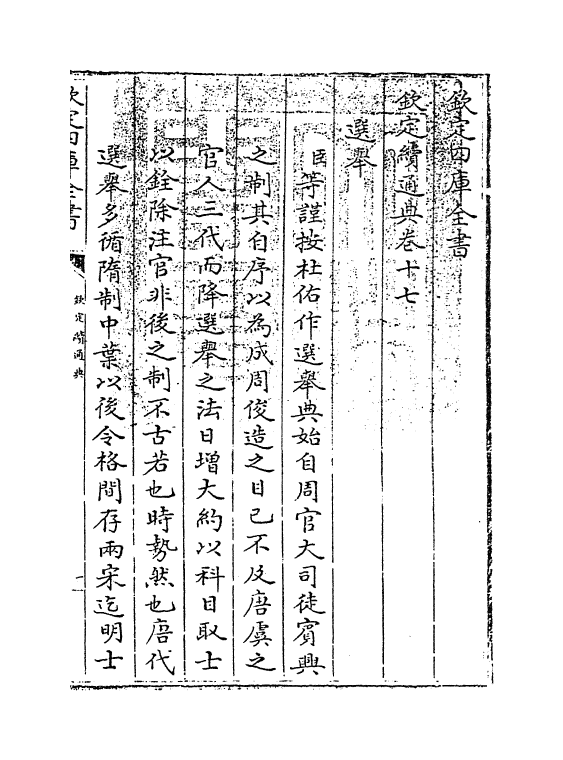 欽定四庫全書
欽定續通典卷十七
選舉
臣等謹按杜佑作選舉典始自周官大司徒賓興
之制其自序以為成周俊造之目已不及唐虞之
官人三代而降選舉之法日增大約以科目取士
以銓除注官非後之制不古若也時勢然也唐代
選舉多循隋制中葉以後令格間存兩宋迄明士
欽定四庫全書
欽定續通典